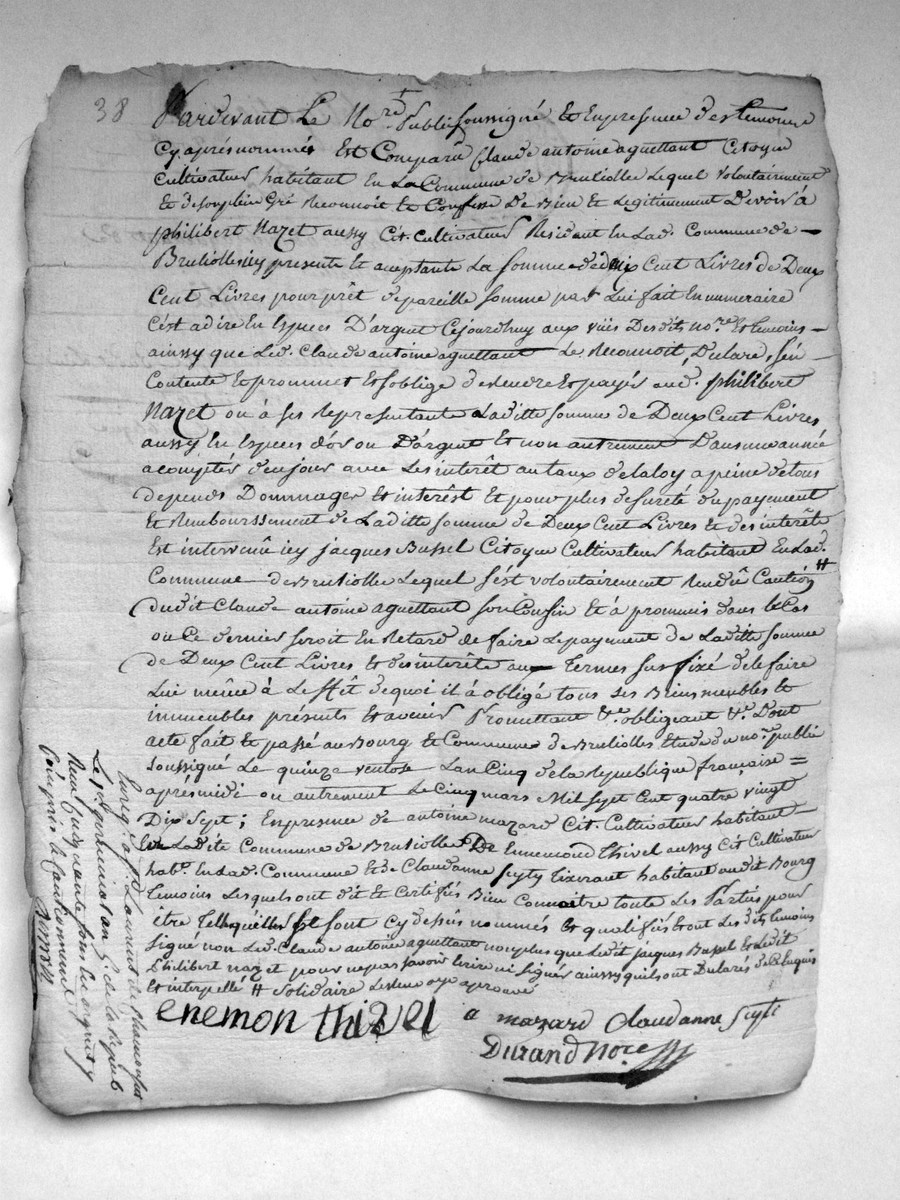 38
Pardevant Le Nore. Public soussigné Et En presence des temoins
Cy aprés nommés Est Comparû Claude antoine aguettant Citoyen
Cultivateur habitant En La Commune de Bruliolle Lequel volontairement
Et de son plein Gré Reconnoit Et Confesse De bien Et Legitimement Devoir à
philibert Nazet aussy Cit. Cultivateur Resident En Lad. Commune de
Brulioles icy presente Et aceptante La somme de deux Cent Livres de Deux
Cent Livres pour prêt de pareille somme par Lui fait En numeraire
C'est adire En Espces D'argent Cejourdhuy aux vües Desdits nore. Et temoins
ainssy que Led. Claude antoine aguettant Le Reconnoit, Declare, s'en
Contente Et prommet Et s'oblige de rendre Et payér aud. philibert
Nazet ou à ses Representants Laditte somme de Deux Cent Livres
aussy En Espces d'or ou D'argent Et non autrement Dans une année
a comptér de ce jour avec Les interêt au taux de la loy a peine de tous
depends Dommages Et interêst Et pour plus de sureté du payement
Et Rembourssement de Laditte somme de Deux Cent Livres Et des interêts
Est intervenû icy jacques Bussel Citoyen Cultivateur habitant En Lad.
Commune de Brulioles Lequel s'est volontairement Rendû Caution #
dudit Claude antoine aguettant son Cousin Et à prommis dans le Cas
ou Ce dernier seroit En Retard de faire Le payement de Laditte somme
de Deux Cent Livres Et des interêts aux termes sus fixé de le faire
Lui même à Leffêt de quoi il à obligé tous ses Biens meubles Et
immeubles présents Et avenir Promettant &e. obligeant &e. Dont
acte fait Et passé au Bourg Et Commune de Brulioles Etude du nore. public
soussigné Le quinze ventose L'an Cinq de la Republique française =
aprés midi ou autrement Le Cinq mars Mil sept Cent quatre vingt
Dix sept; En presence de antoine mazard Cit. Cultivateur habitant
En Ladite Commune de Brusiolle De Ennemond Thivel aussy Cit Cultivateur
habt. En Lad. Commune Et de Claudanne Scyty tixerant habitant audit Bourg
temoins Lesquels ont dit Et certifiés Bien Connoitre toute Les Parties pour
être telles qu'elles se sont Cy dessus nommés Et qualifiés Et ont Les dits temoins
signé non Led. Claude antoine aguettant non plus que Ledit jaques Bussel Et Ledit
Philibert nazet pour ne pas savoir Ecrire ni signér ainssy quils ont Declarés de Ce Enquis
Et interpellé # solidaire Le renvoy aprouvé
enemon thivel a mazard Claudanne Scyti
Durand Nore
Enreg. à St. Laurent de Chamousset
Le germinal an 5. de la Repub.
Reçu Cinquante sous
Compris le Cautionnement